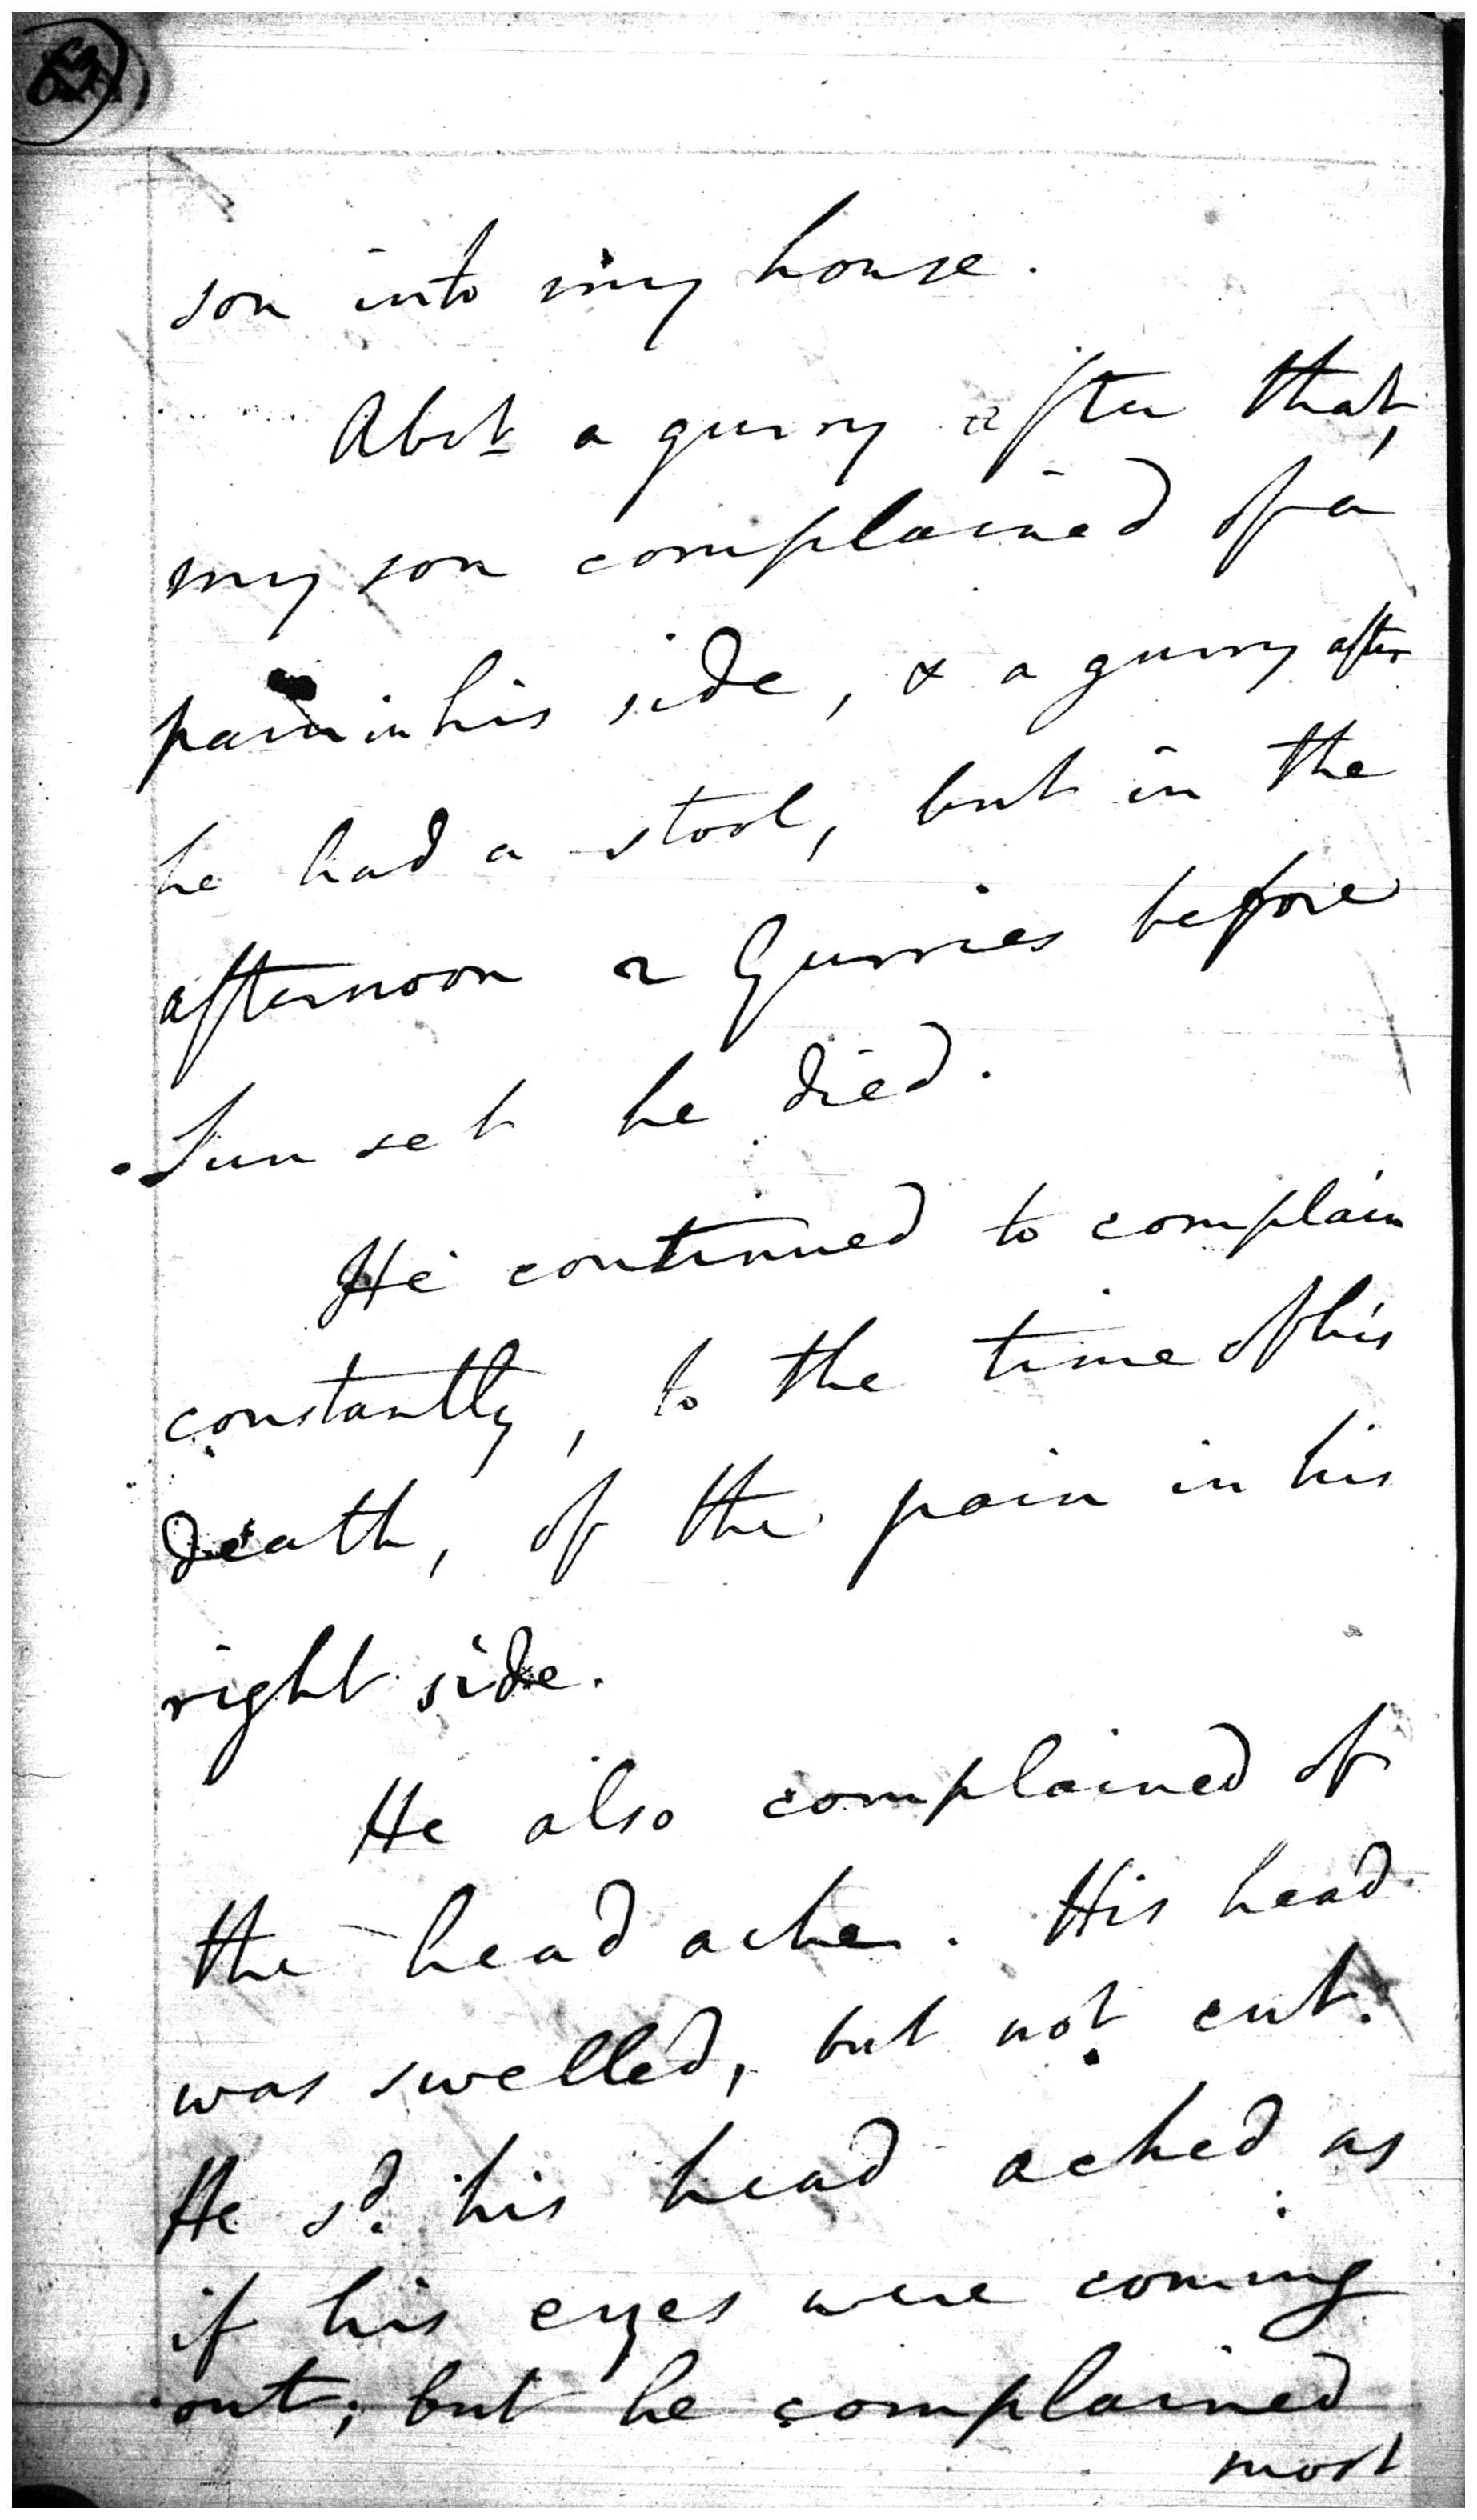 63
son into my house.
Abt a gurry after that,
my son complained of a
pain in his side, & a gurry after
he had a stool, but in the
afternoon 2 Gurries before
Sunset he died.
He continued to complain
constantly, to the time of his
death, of the pain in his
right side.
He also complained of
the head ache. His head
was swelled, but not cut.
He sd. his head ached as
if his eyes were coming
out; but he complained
most